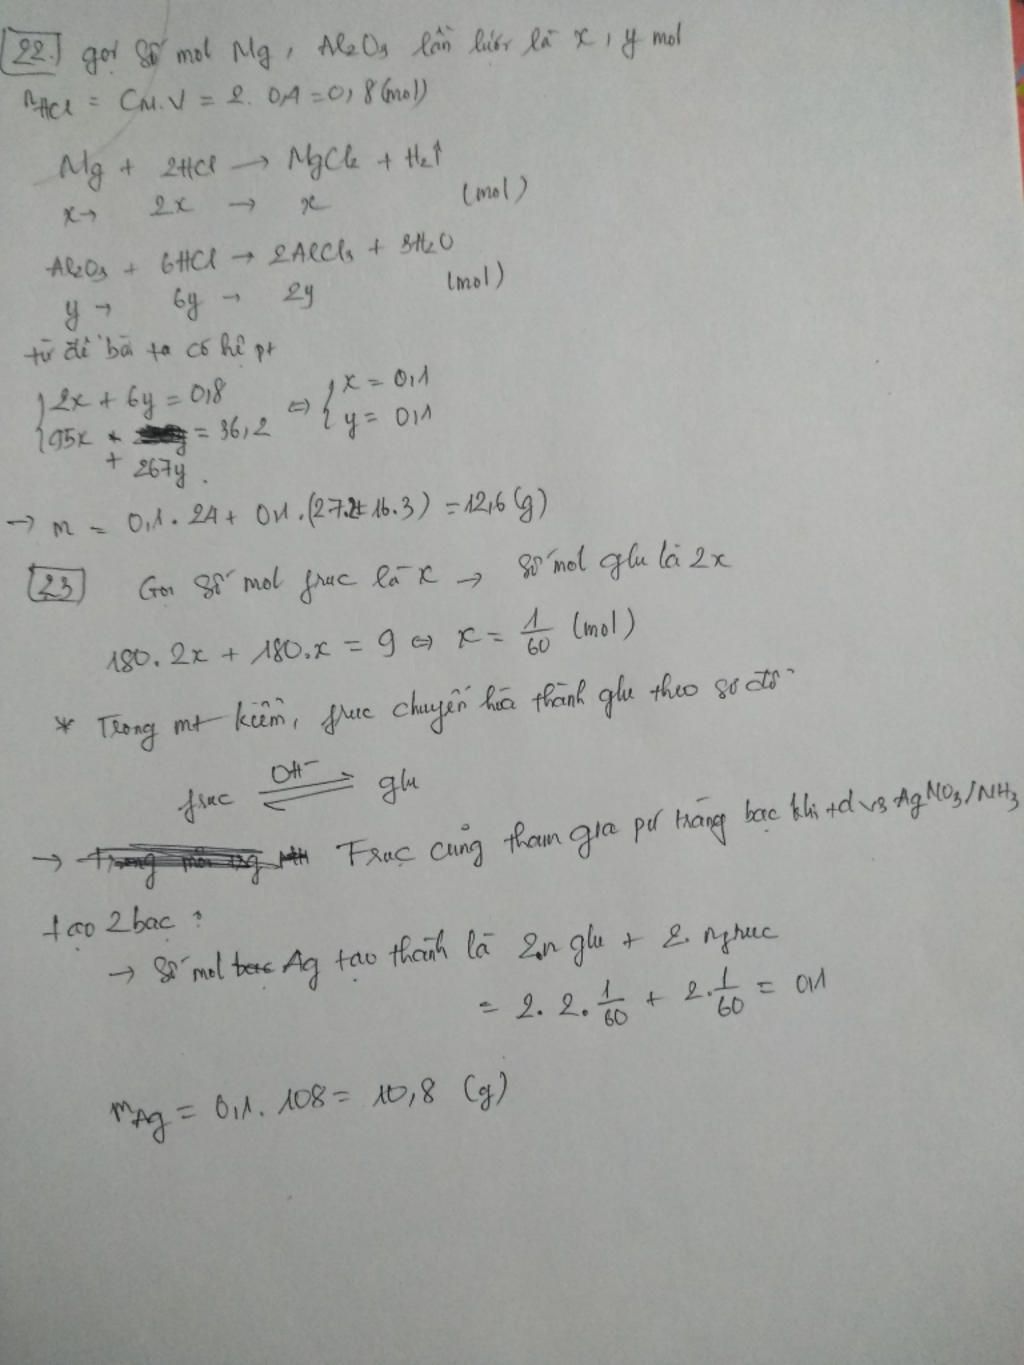 22. gọi số mol Mg, Al2O3 lần lượt là x, y mol
nHCl = CM.V = 2. 0,4 = 0,8 (mol)
Mg + 2HCl → MgCl2 + H2↑
x → 2x → x (mol)
Al2O3 + 6HCl → 2AlCl3 + 3H2O
y → 6y → 2y (mol)
từ đề bài ta có hệ pt
{ 2x + 6y = 0,8 ⇔ { x = 0,1
{ 95x + 267y = 36,2 { y = 0,1
→ m = 0,1. 24 + 0,1.(27.2+16.3) = 12,6 (g)
23 Gọi số mol fruc là x → số mol glu là 2x
180. 2x + 180.x = 9 ⇔ x = 1/60 (mol)
* Trong mt kiềm, fruc chuyển hóa thành glu theo sơ đồ
fruc ⇌ OH- glu
→ Fruc cũng tham gia pư tráng bạc khi t/d vs AgNO3/NH3
tạo 2 bạc :
→ Số mol Ag tạo thành là 2.n glu + 2. nfruc
= 2. 2. 1/60 + 2. 1/60 = 0,1
mAg = 0,1. 108 = 10,8 (g)